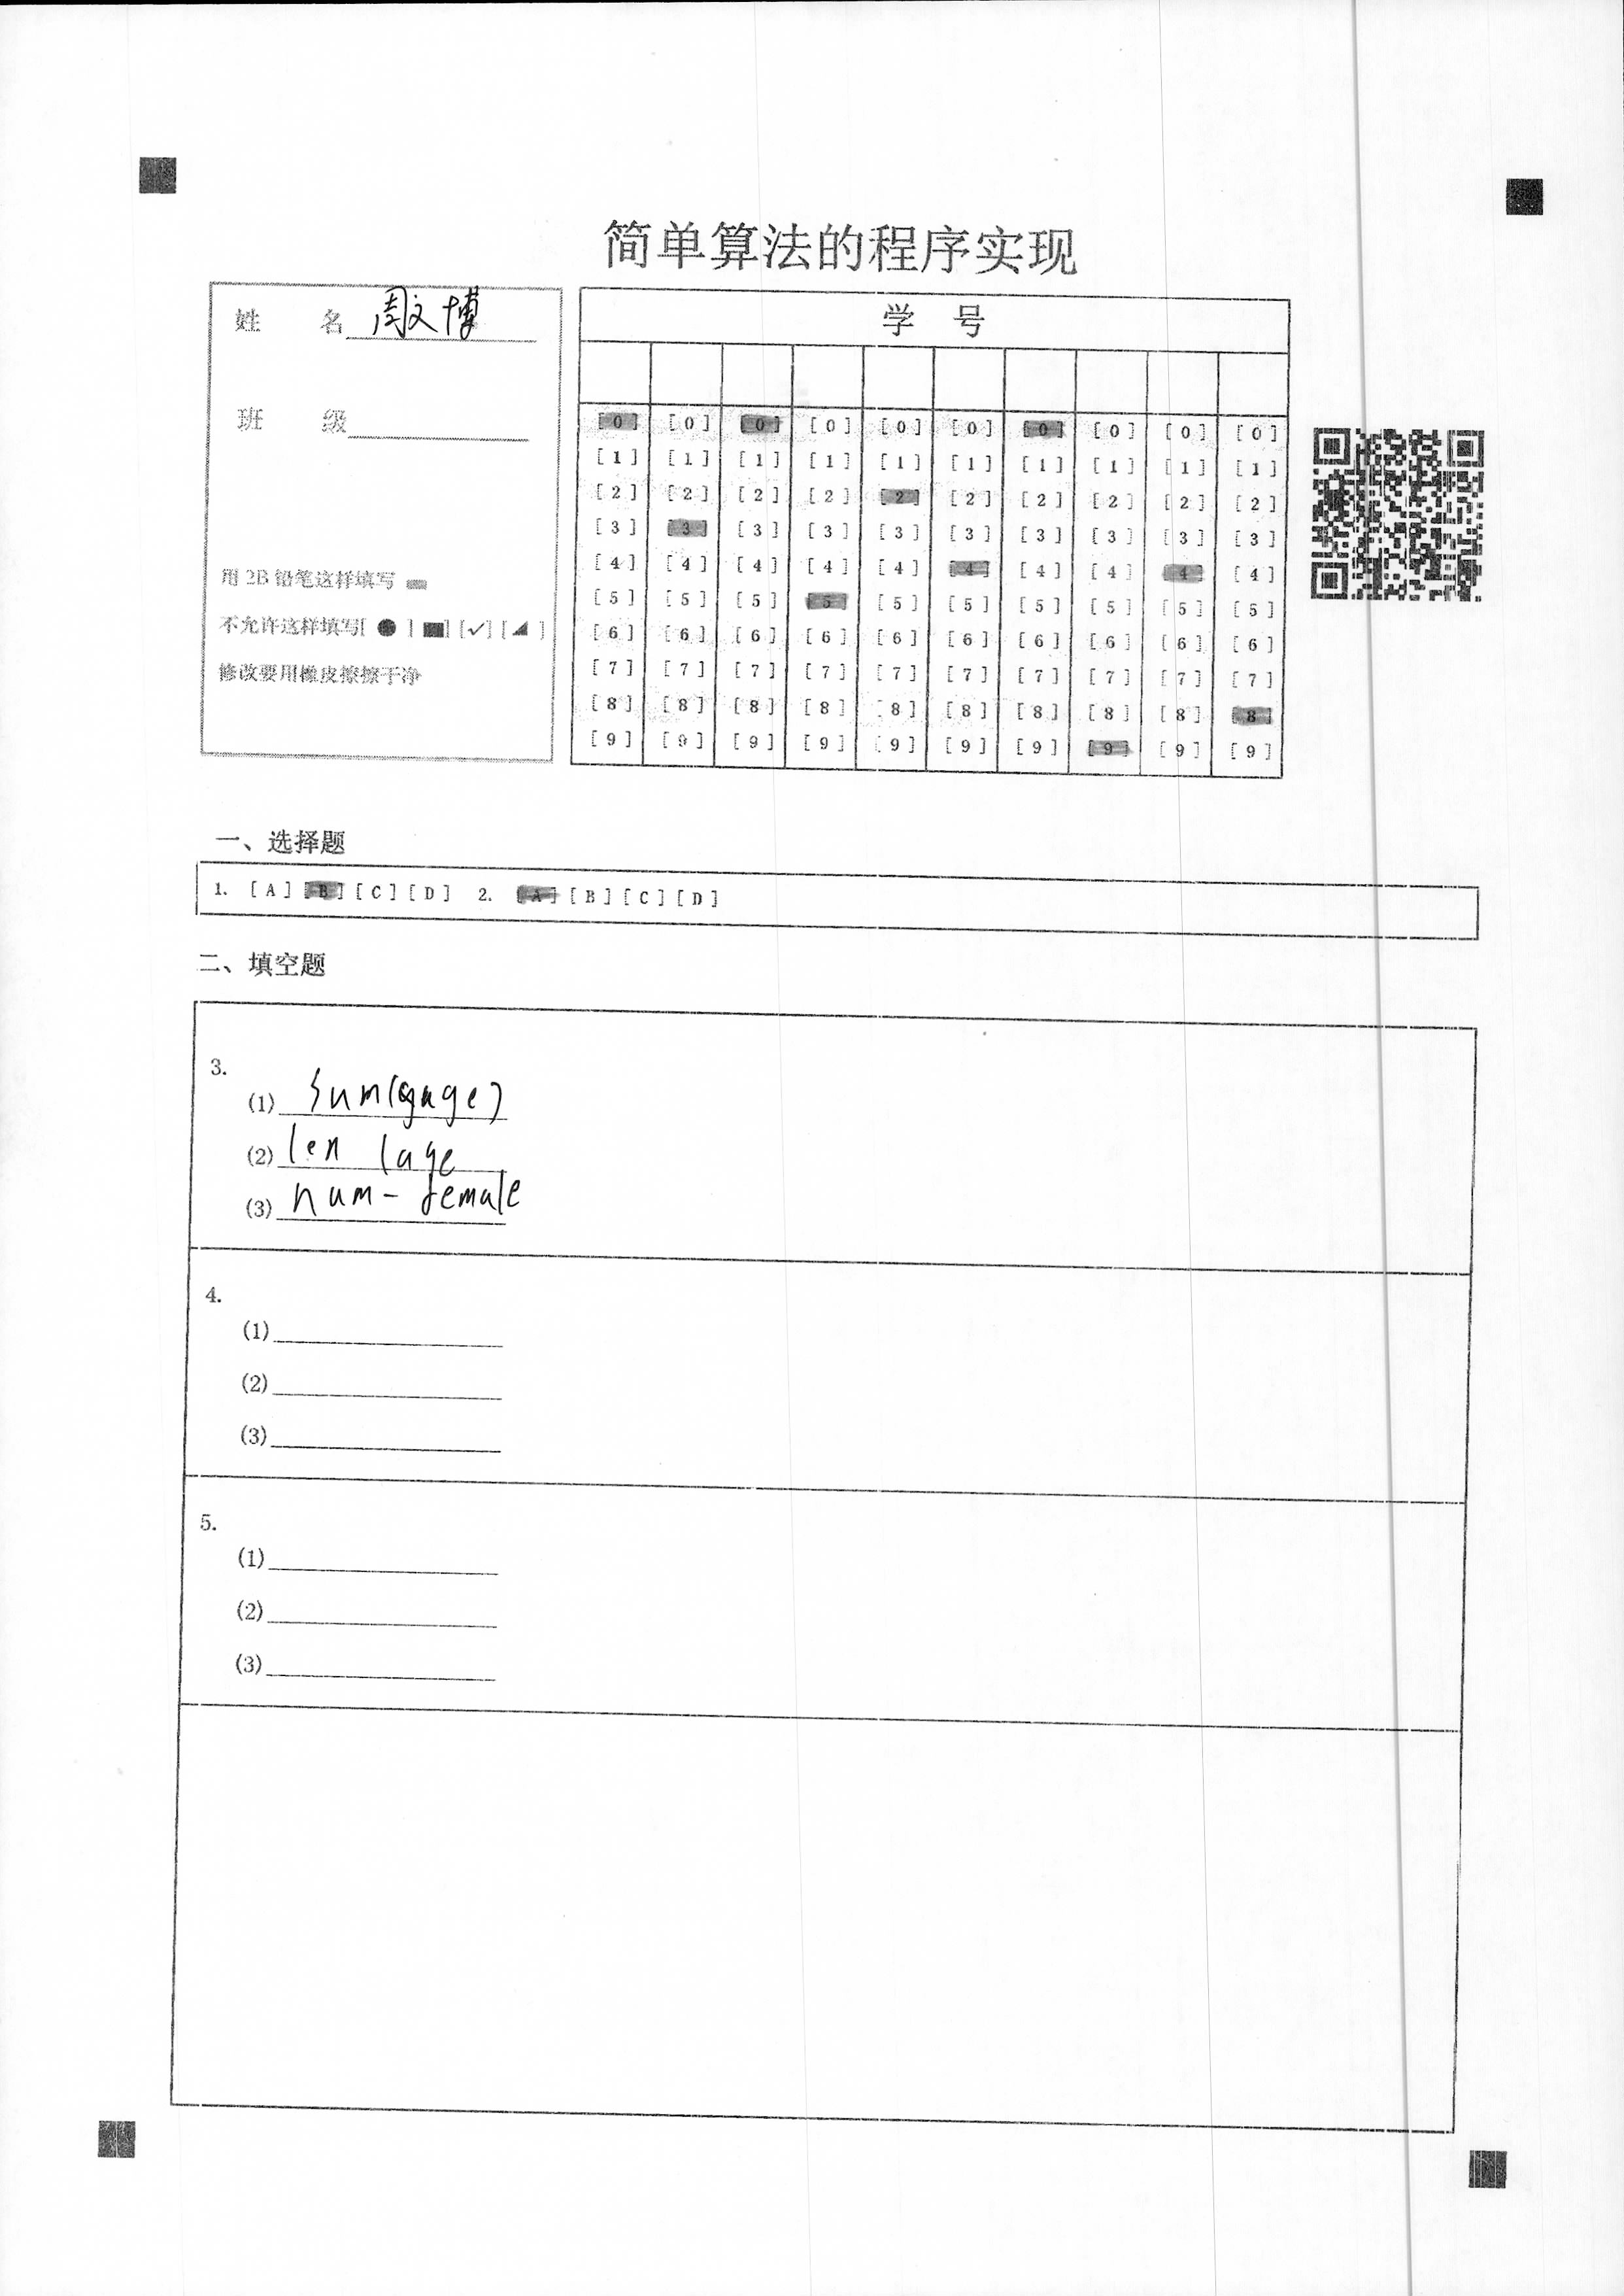 简单算法的程序实现
姓 名 周文博
班 级
用 2B 铅笔这样填写
不允许这样填写[ ● ] [■] [✓] [◢ ]
修改要用橡皮擦擦干净
学 号
[0] [0] [0] [0] [0] [0] [0] [0] [0] [0]
[1] [1] [1] [1] [1] [1] [1] [1] [1] [1]
[2] [2] [2] [2] [2] [2] [2] [2] [2] [2]
[3] [3] [3] [3] [3] [3] [3] [3] [3] [3]
[4] [4] [4] [4] [4] [4] [4] [4] [4] [4]
[5] [5] [5] [5] [5] [5] [5] [5] [5] [5]
[6] [6] [6] [6] [6] [6] [6] [6] [6] [6]
[7] [7] [7] [7] [7] [7] [7] [7] [7] [7]
[8] [8] [8] [8] [8] [8] [8] [8] [8] [8]
[9] [9] [9] [9] [9] [9] [9] [9] [9] [9]
一、选择题
1. [A] [B] [C] [D] 2. [A] [B] [C] [D]
二、填空题
3.
(1) sum(age)
(2) len (age
(3) num- female
4.
(1)
(2)
(3)
5.
(1)
(2)
(3)